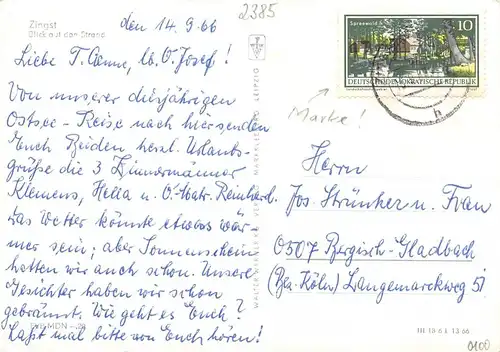 Zingst
Blick auf den Strand
den 14.9.66
2385
Liebe T. Aenne, lb. O. Josef!
Von unserer diesjährigen
Ostsee-Reise nach hier senden
Euch Beiden herzl. Urlaubs-
grüße die 3
Klemens, Hella u. O. Reinhard.
Das Wetter könnte etwas wär-
mer sein; aber Sonnenschein
hatten wir auch schon. Unsere
Gesichter haben wir schon
gebräunt. Wie geht es Euch?
Laßt mal bitte von Euch hören!
LEIPZIG
Spreewald
10
DEUTSCHE DEMOKRATISCHE REPUBLIK
Marke!
Herrn
Jos. Strünker u. Frau
0507 Bergisch-Gladbach
(Bez. Köln) Langemarckweg 51
III 18 6 L 13 66
0100